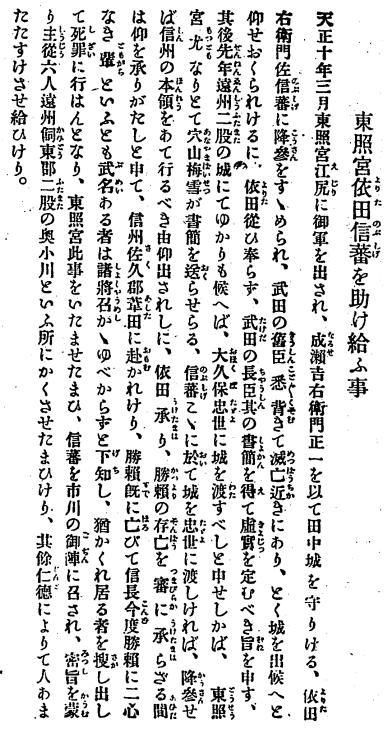 東照宮依田信蕃を助け給ふ事
天正十年三月東照宮江尻に御軍を出され、成瀬吉右衛門正一を以て田中城を守りける、依田
右衛門佐信蕃に降參をすゝめられ、武田の舊臣悉背きて滅亡近きにあり、とく城を出候へと
仰せおくられけるに、依田從ひ奉らず、武田の長臣其の書簡を得て虛實を定むべき旨を申す、
其後先年遠州二股の城にてゆかりも候へば、大久保忠世に城を渡すべしと申せしかば、東照
宮尤なりとて穴山梅雪が書簡を送らせらる、信蕃こゝに於て城を忠世に渡しければ、降參せ
ば信州の本領をあて行るべき由仰出されしに、依田承り、勝賴の存亡を審に承らざる間
は仰を承りがたしと申て、信州佐久郡葦田に赴かれけり、勝賴旣に亡びて信長今度勝賴に二心
なき輩といふとも武名ある者は諸將召かゝゆべからずと下知し、猶かくれ居る者を搜し出し
て死罪に行はんとなり、東照宮此事をいたませたまひ、信蕃を市川の御陣に召され、密旨を蒙
り主從六人遠州伺東郡二股の奧小川といふ所にかくさせたまひけり、其餘仁德によりて人あま
たたすけさせ給ひけり。